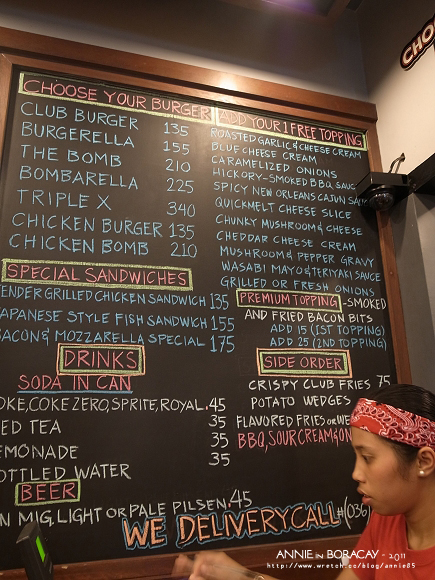 CHOOSE YOUR BURGER
CLUB BURGER 135
BURGERELLA 155
THE BOMB 210
BOMBARELLA 225
TRIPLE X 340
CHICKEN BURGER 135
CHICKEN BOMB 210
SPECIAL SANDWICHES
ENDER GRILLED CHICKEN SANDWICH 135
APANESE STYLE FISH SANDWICH 155
BACON & MOZZARELLA SPECIAL 175
DRINKS
SODA IN CAN
OKE, COKE ZERO, SPRITE, ROYAL. 45
ED TEA 35
EMONADE 35
OTTLED WATER 35
BEER
N MIG, LIGHT OR PALE PILSEN. 45
ADD YOUR 1 FREE TOPPING
ROASTED GARLIC & CHEESE CREAM
BLUE CHEESE CREAM
CARAMELIZED ONIONS
HICKORY-SMOKED BBQ SAUC
SPICY NEW ORLEANS CAJUN SAU
QUICKMELT CHEESE SLICE
CHUNKY MUSHROOM & CHEESE
CHEDDAR CHEESE CREAM
MUSHROOM & PEPPER GRAVY
WASABI MAYO & TERIYAKI SAUCE
GRILLED OR FRESH ONIONS
PREMIUM TOPPING -SMOKED
AND FRIED BACON BITS
ADD 15 (1ST TOPPING)
ADD 25 (2ND TOPPING)
SIDE ORDER
CRISPY CLUB FRIES 75
POTATO WEDGES
FLAVORED FRIES OR WE
BBQ, SOUR CREAM & ON
WE DELIVER CALL# (036)
CHO
ANNIE in BORACAY - 2011
http://www.wretch.cc/blog/annie85